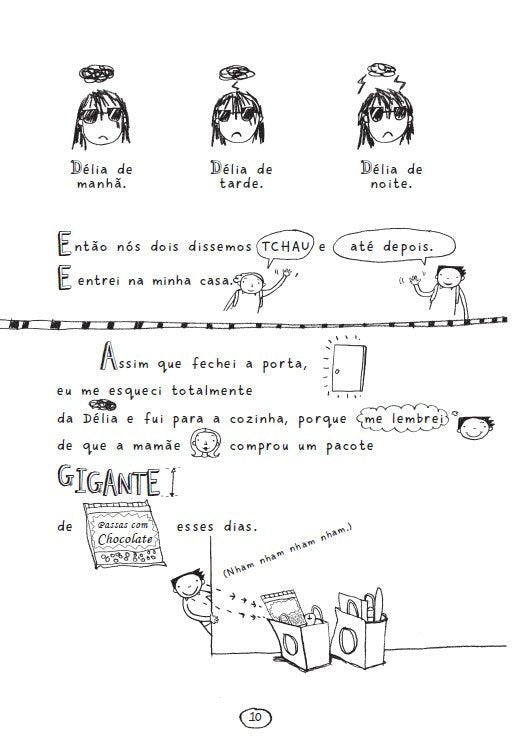 Délia de manhã.
Délia de tarde.
Délia de noite.
Então nós dois dissemos TCHAU e até depois.
E entrei na minha casa.
Assim que fechei a porta,
eu me esqueci totalmente
da Délia e fui para a cozinha, porque me lembrei
de que a mamãe comprou um pacote
GIGANTE
de Passas com Chocolate esses dias.
(Nham nham nham nham.)
10